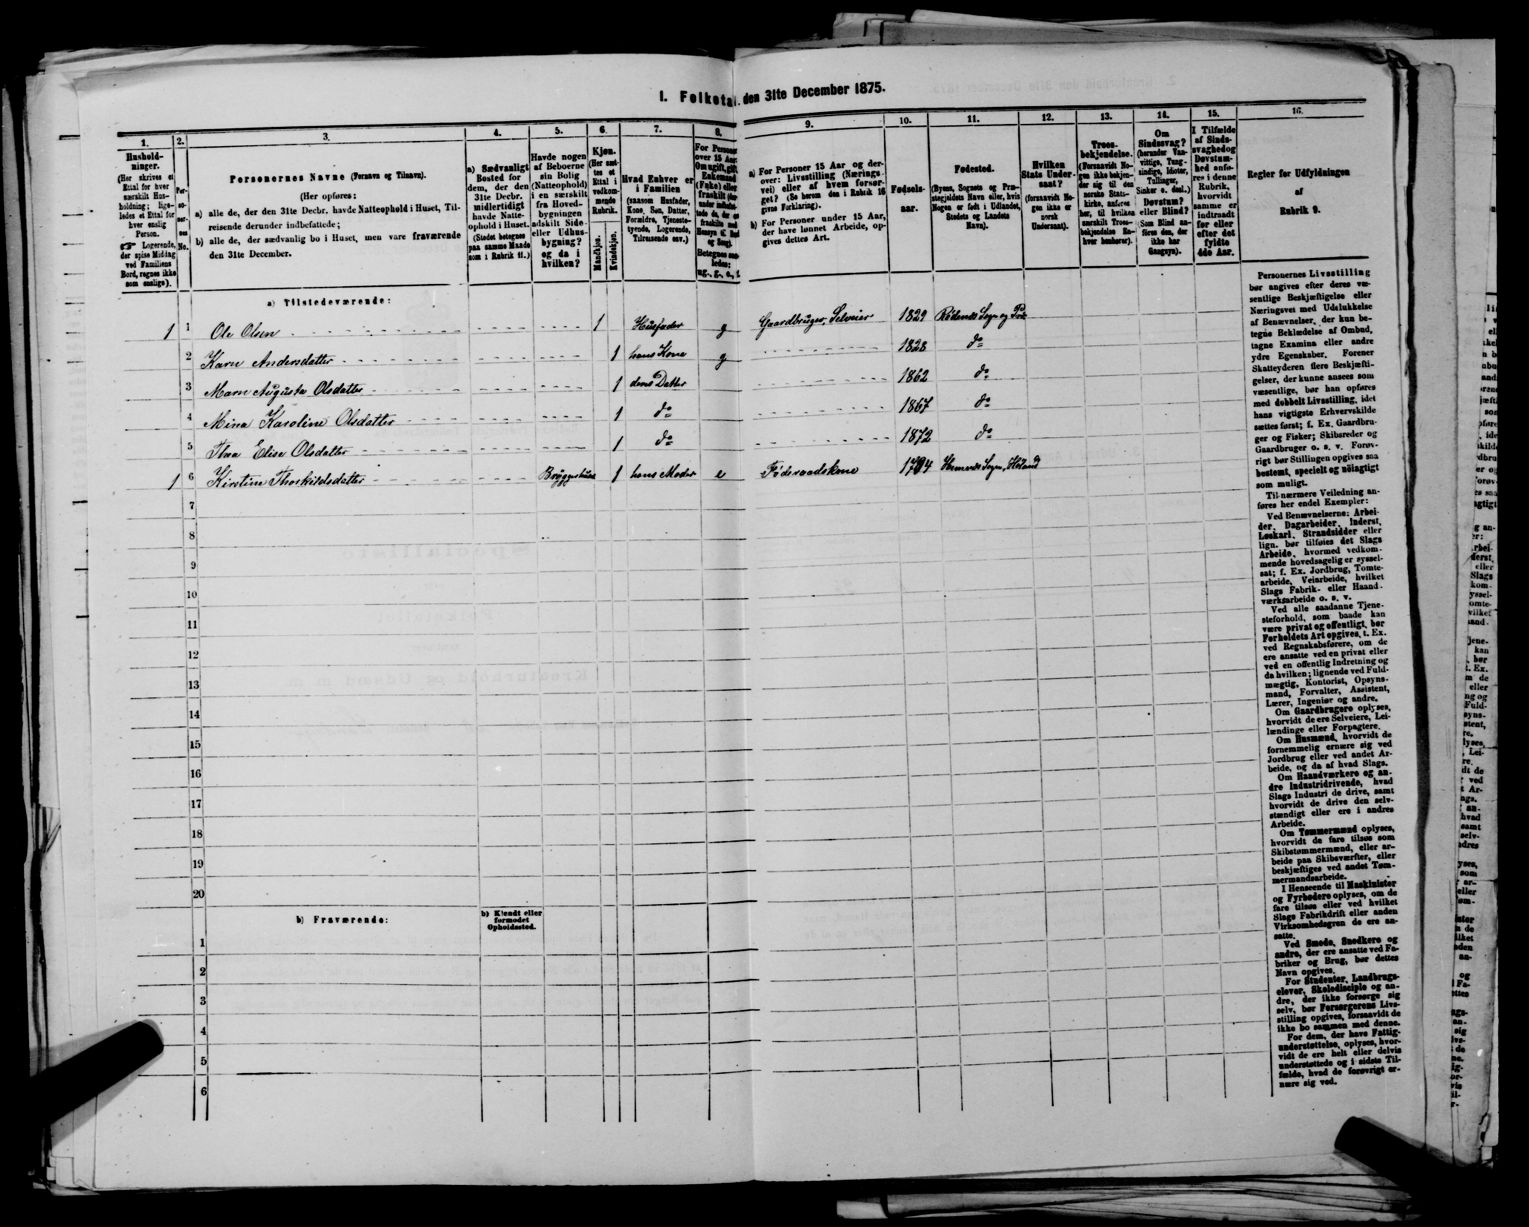 I. Folketal den 31te December 1875.
1. 2. 3. 4. 5. 6. 7. 8. 9. 10. 11. 12. 13. 14. 15. 16.
Hushold-
ninger.
(Her skrives et
Ettal for hver
særskilt Hus-
holdning; lige-
ledes et Ettal for
hver enslig
Person.
☞ Logerende,
der spise Middag
ved Familiens
Bord, regnes ikke
som enslige).
Per-
so-
ner-
nes
No.
Personernes Navne (Fornavn og Tilnavn).
(Her opføres:
a) alle de, der den 31te Decbr. havde Natteophold i Huset, Til-
reisende derunder indbefattede;
b) alle de, der sædvanlig bo i Huset, men vare fraværende
den 31te December.
a) Sædvanligt
Bosted for
dem, der den
31te Decbr.
midlertidigt
havde Natte-
ophold i Huset.
(Stedet betegnes
paa samme Maade
som i Rubrik 11.)
Havde nogen
af Beboerne
sin Bolig
(Natteophold)
i en særskilt
fra Hoved-
bygningen
adskilt Side-
eller Udhus-
bygning?
og da i
hvilken?
Kjøn.
(Her sæt-
tes et
Ettal i
vedkom-
mende
Rubrik.
Mandkjøn.
Kvindekjøn.
Hvad Enhver er
i Familien
(saasom Husfader,
Kone, Søn, Datter,
Forældre, Tjeneste-
tyende, Logerende,
Tilreisende osv.)
For Personer
over 15 Aar:
Om ugift, gift,
Enkemand
(Enke) eller
fraskilt
a) For Personer 15 Aar og der-
over: Livsstilling (Nærings-
vei) eller af hvem forsør-
get? (Se herom den i Rubrik 16
givne Forklaring).
b) For Personer under 15 Aar,
der have lønnet Arbeide, op-
gives dettes Art.
Fødsels-
aar.
Fødested.
(Byens, Sognets og Præ-
stegjeldets Navn eller, hvis
Nogen er født i Udlandet,
Stedets og Landets
Navn).
Hvilken
Stats Under-
saat?
(forsaavidt No-
gen ikke er
norsk
Undersaat).
Troes-
bekjendelse.
(Forsaavidt No-
gen ikke bekjen-
der sig til den
norske Stats-
kirke, anføres
her, til hvilken
særskilt Troes-
bekjendelse En-
hver henhører).
Om
Sindssvag?
(herunder Van-
vittige, Tung-
sindige, Idioter,
Tullinger,
Sinker o. desl.)
Døvstum?
eller Blind?
(Som Blind an-
føres den, der
ikke har
Gangsyn).
I Tilfælde
af Sinds-
svaghed og
Døvstum-
hed anfø-
res i denne
Rubrik,
hvorvidt
samme er
indtraadt
før eller
efter det
fyldte
4de Aar.
Regler for Udfyldningen
af
Rubrik 9.
a) Tilstedeværende:
1 1 Ole Olsen 1 Husfader g Gaardbruger, Selveier 1829 Rødenes Sogn og
2 Karn Andersdatter 1 hans Kone g 1828 do
3 Marn Augusta Olsdatter 1 deres Datter 1862 do
4 Mina Karoline Olsdatter 1 do 1867 do
5 Thea Elise Olsdatter 1 do 1872 do
1 6 Kirstine Thorkildsdatter Bryggerhuset 1 hans Moder e Føderaadskone 1784 Hemnes Sogn, Høland
7
8
9
10
11
12
13
14
15
16
17
18
19
20
b) Fraværende:
b) Kjendt eller
formodet
Opholdssted.
1
2
3
4
5
6
Personernes Livsstilling
bør angives efter deres væ-
sentlige Beskjæftigelse eller
Næringsvei med Udelukkelse
af Benævnelser, der kun be-
tegne Beklædelse af Ombud,
tagne Examina eller andre
ydre Egenskaber. Forener
Skatteyderen flere Beskjæfti-
gelser, der kunne ansees som
væsentlige, bør han opføres
med dobbelt Livsstilling, idet
hans vigtigste Erhvervskilde
sættes først; f. Ex. Gaardbru-
ger og Fisker; Skibsreder og
Gaardbruger o. s. v. Forøv-
rigt bør Stillingen opgives saa
bestemt, specielt og nøiagtigt
som muligt.
Til nærmere Veiledning an-
føres her endel Exempler:
Ved Benævnelserne: Arbei-
der, Dagarbeider, Inderst,
Løskarl, Strandsidder eller
lign. bør tilføies det Slags
Arbeide, hvormed vedkom-
mende hovedsagelig er syssel-
sat; f. Ex. Jordbrug, Tomte-
arbeide, Veiarbeide, hvilket
Slags Fabrik- eller Haand-
værksarbeide o. s. v.
Ved alle saadanne Tjene-
steforhold, som baade kan
være privat og offentligt, bør
Forholdets Art opgives, t. Ex.
ved Regnskabsførere, om de
ere ansatte ved en privat eller
ved en offentlig Indretning og
da hvilken; lignende ved Fuld-
mægtig, Kontorist, Opsyns-
mand, Forvalter, Assistent,
Lærer, Ingeniør og andre.
Om Gaardbrugere oplyses,
hvorvidt de ere Selveiere, Lei-
lændinge eller Forpagtere.
Om Husmænd, hvorvidt de
fornemmelig ernære sig ved
Jordbrug eller ved andet Ar-
beide, og da af hvad Slags.
Om Haandværkere og an-
dre Industridrivende, hvad
Slags Industri de drive, samt
hvorvidt de drive den selv-
stændigt eller ere i andres
Arbeide.
Om Tømmermænd oplyses,
hvorvidt de fare tilsøs som
Skibstømmermænd, eller ar-
beide paa Skibsværfter, eller
beskjæftiges ved andet Tøm-
mermandsarbeide.
I Henseende til Maskinister
og Fyrbødere oplyses, om de
fare tilsøs eller ved hvilket
Slags Fabrikdrift eller anden
Virksomhedsgren de ere an-
satte.
Ved Smede, Snedkere og
andre, der ere ansatte ved Fa-
briker og Brug, bør dettes
Navn opgives.
For Studenter, Landbrugs-
elever, Skoledisciple og an-
dre, der ikke forsørge sig
selv, bør Forsørgerens Livs-
stilling opgives, forsaavidt de
ikke bo sammen med denne.
For dem, der have Fattig-
understøttelse, oplyses, hvor-
vidt de ere helt eller delvis
understøttede og i sidste Til-
fælde, hvad de forøvrigt er-
nære sig ved.